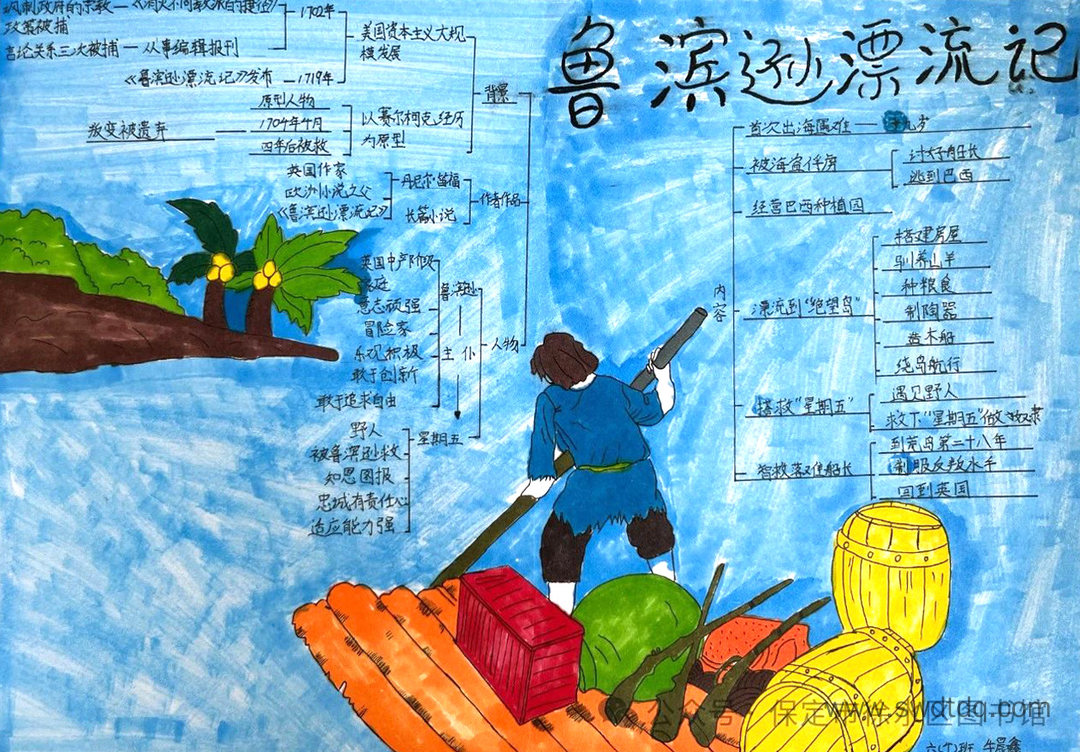 鲁滨逊漂流记
讽刺政府的宗教—《消灭不同教派的捷径》
政策被捕
1702年
言论关系三次被捕—从事编辑报刊
美国资本主义大规
模发展
《鲁滨逊漂流记》发布—1719年
背景
原型人物
叛变被遗弃
1704年4月
四年后被救
以赛尔柯克经历
为原型
英国作家
欧洲小说之父
《鲁滨逊漂流记》
丹尼尔·笛福
长篇小说
作者作品
英国中产阶级
家庭
意志顽强
冒险家
乐观积极
敢于创新
敢于追求自由
鲁滨逊
主仆
人物
野人
被鲁滨逊救
知恩图报
忠诚有责任心
适应能力强
星期五
内容
首次出海遇难—十九岁
被海盗俘虏
讨好船长
逃到巴西
经营巴西种植园
漂流到“绝望岛”
搭建房屋
驯养山羊
种粮食
制陶器
造木船
绕岛航行
搭救“星期五”
遇见野人
救下“星期五”做奴隶
智救落难船长
到荒岛第二十八年
制服反叛水手
回到英国
公众号·保定
区图书馆
www.swdtdq.com